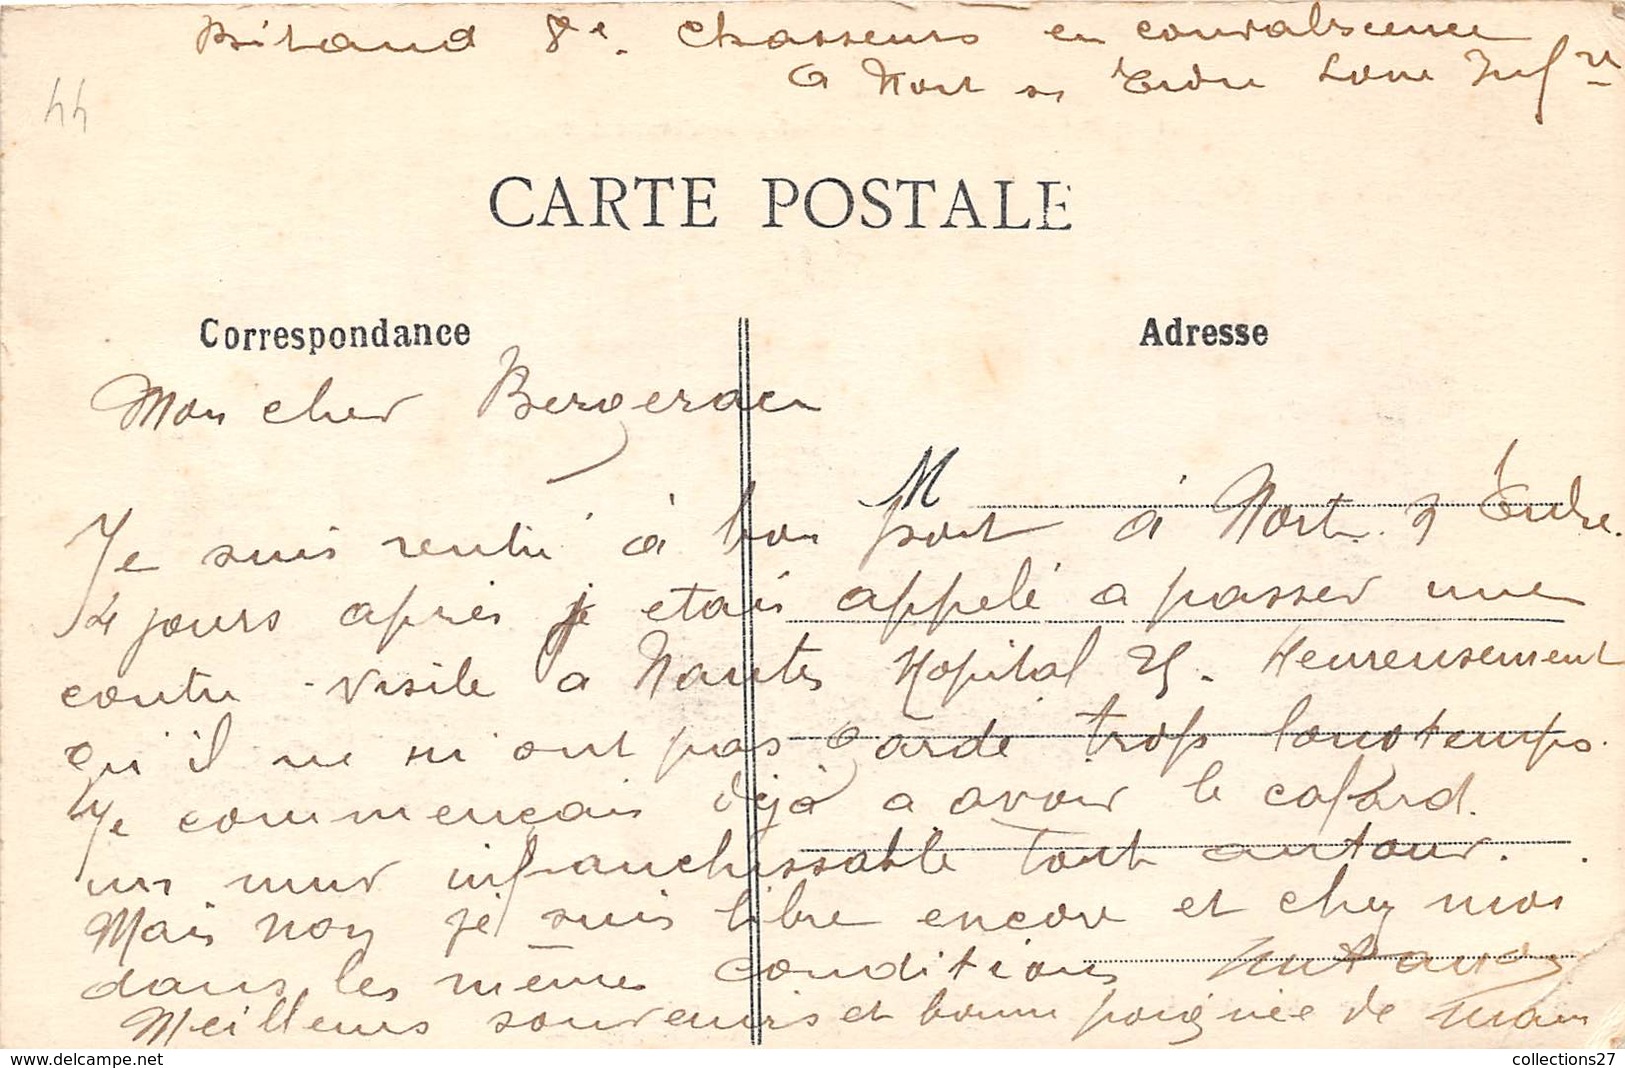 Bitaud 8e. Chasseurs en convalscence
a Nort sr Erdre Loire Infre
44
CARTE POSTALE
Correspondance
Adresse
Mon cher Bergerac
M
Je suis rentré à bon port à Nort s Erdre.
4 jours après je etais appelé a passer une
contre visite a Nantes Hopital 25. Heureusement
qu'il ne m'ont pas garde trop longtemps.
Je commencais déjà a avoir le cafard.
un mur infranchissable tout autour.
Mais non je suis libre encore et chez moi
dans les mêmes conditions
Meilleurs souvenirs et bonne poignée de main
delcampe.net
collections27